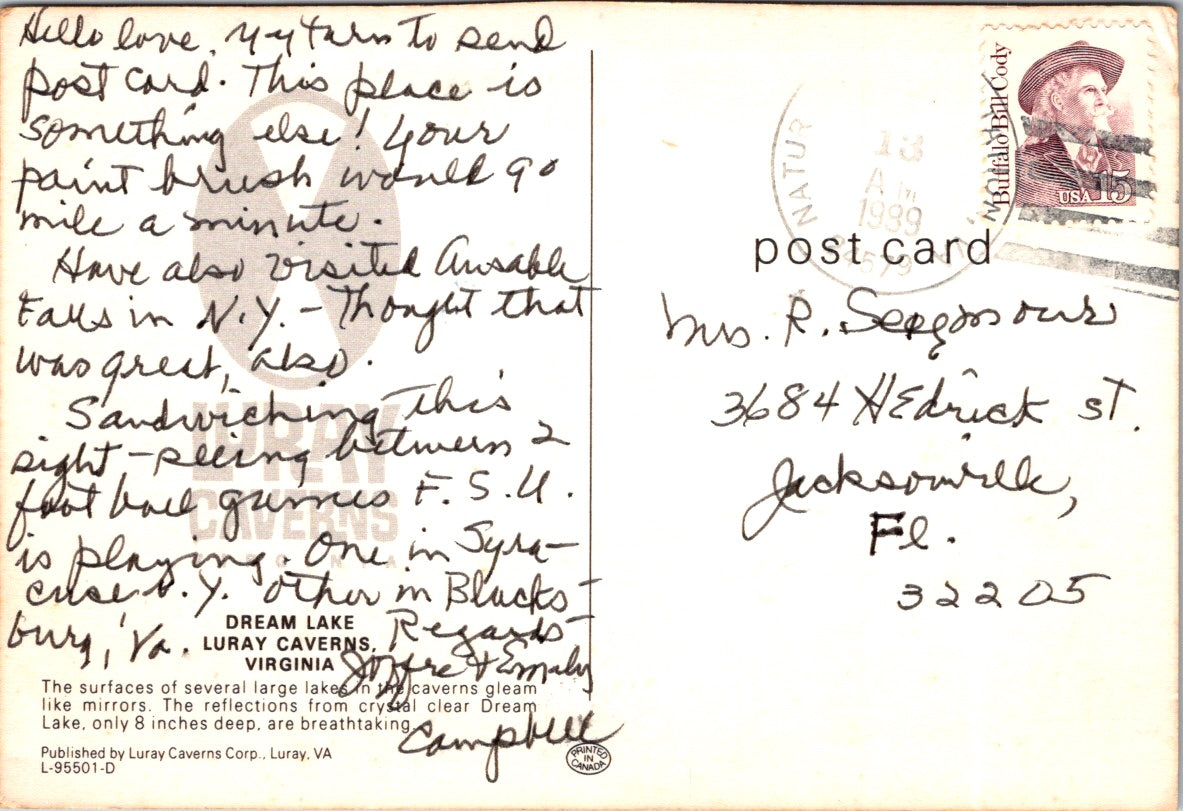 Hello love, my turn to send
post card. This place is
something else! Your
paint brush would go
mile a minute.
Have also visited Ausable
Falls in N.Y. - Thought that
was great, also.
Sandwiching this
sight-seeing between 2
foot ball games F.S.U.
is playing. One in Syra-
cuse N.Y. other in Blacks-
burg, Va. Regards-
Joffre & Emaly
Campbell
LURAY
CAVERNS
DREAM LAKE
LURAY CAVERNS,
VIRGINIA
The surfaces of several large lakes in the caverns gleam
like mirrors. The reflections from crystal clear Dream
Lake, only 8 inches deep, are breathtaking.
Published by Luray Caverns Corp., Luray, VA
L-95501-D
PRINTED
IN
CANADA
NATUR
13
AM
1989
24579
Buffalo Bill Cody
USA 15
post card
Mrs. R. Seagmour
3684 HEdrick st.
Jacksonville,
Fl.
32205